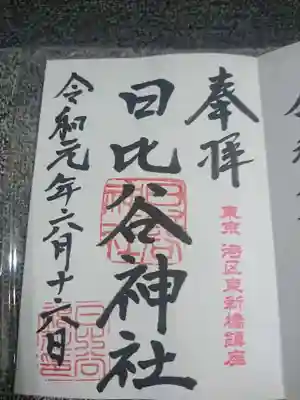 奉拝
東京 港区東新橋鎮座
日比谷神社
令和元年六月十六日